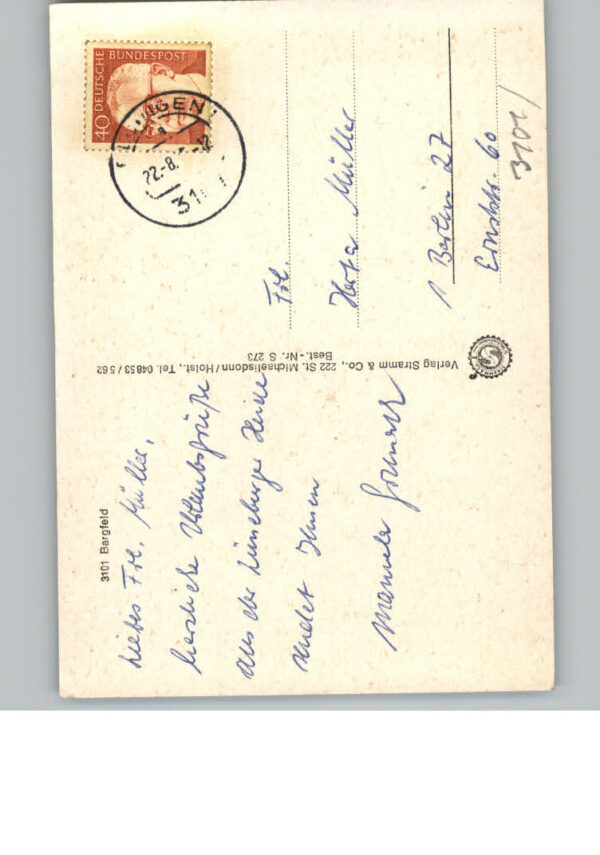 3101 Bargfeld
Liebes Frl. Müller,
herzliche Urlaubsgrüße
aus der Lüneburger Heide
sendet Ihnen
Manuela
Verlag Stramm & Co., 222 St. Michaelisdonn/Holst., Tel. 04853/562
Best.-Nr. S 273
40 DEUTSCHE BUNDESPOST
22.-8.
Frl.
Herta Müller
1 Berlin 27
Ernststr. 60
3101/